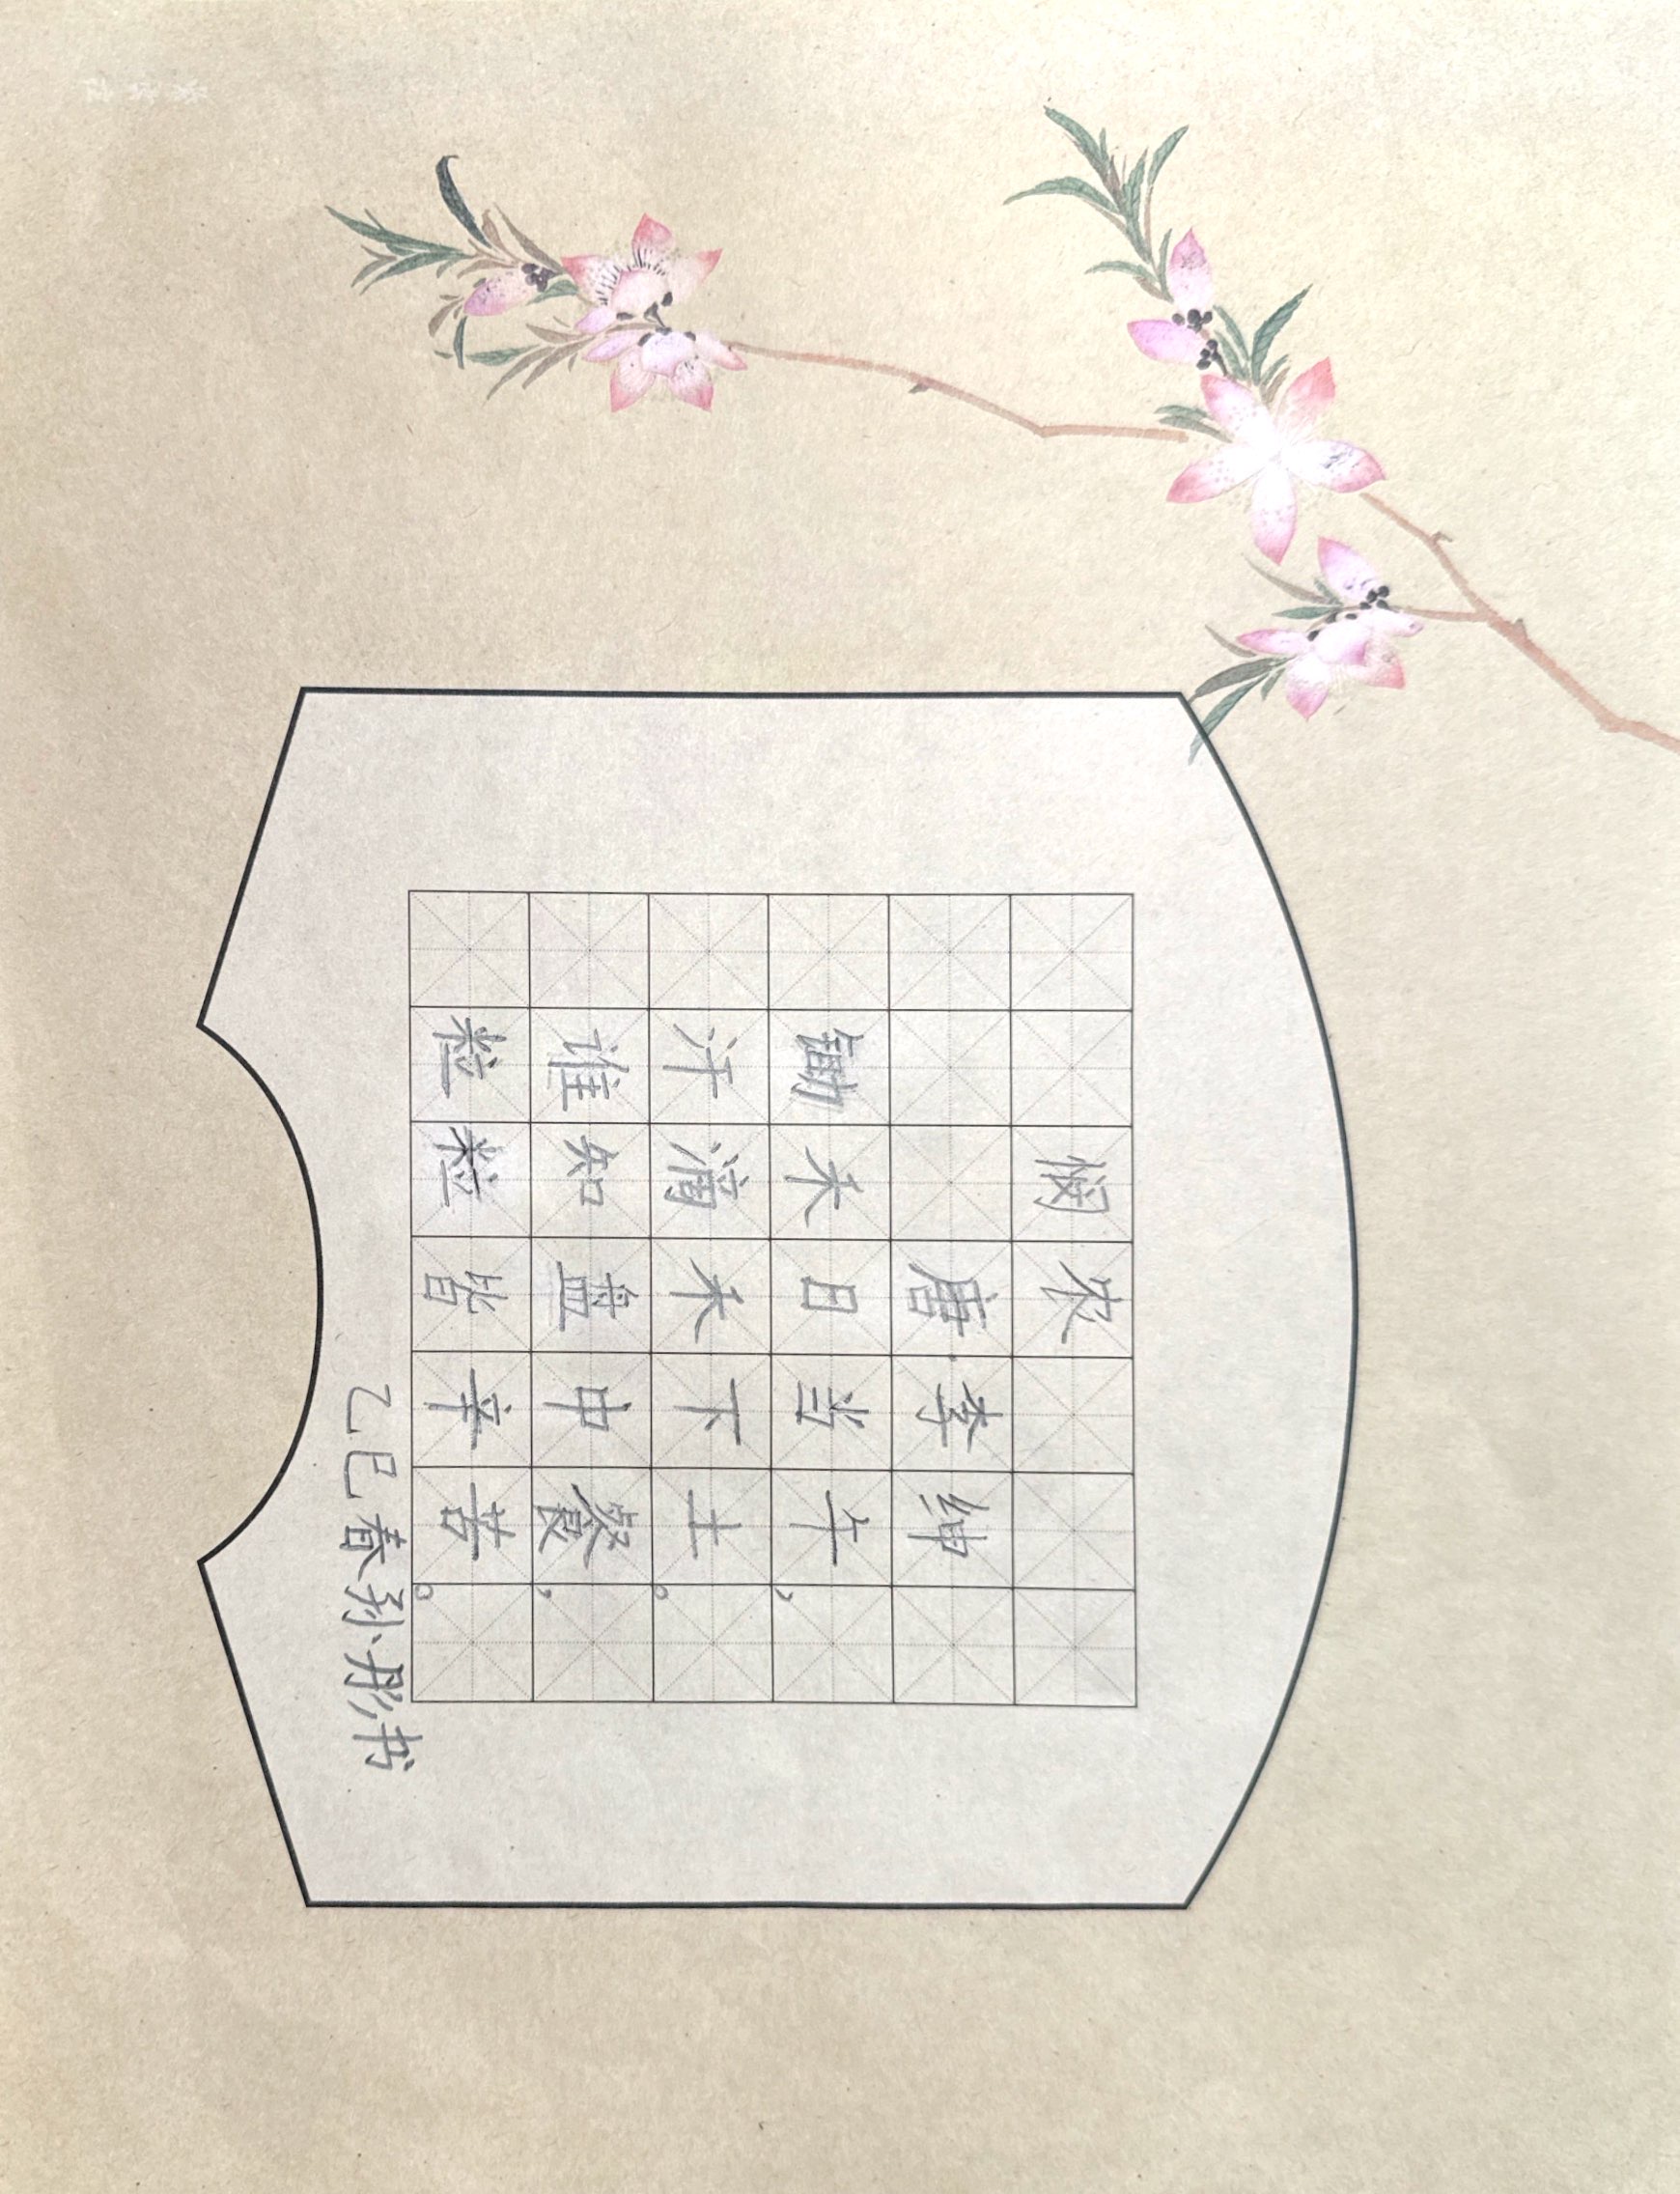 悯农
唐·李绅
锄禾日当午，
汗滴禾下土。
谁知盘中餐，
粒粒皆辛苦。
乙巳春孙彤书